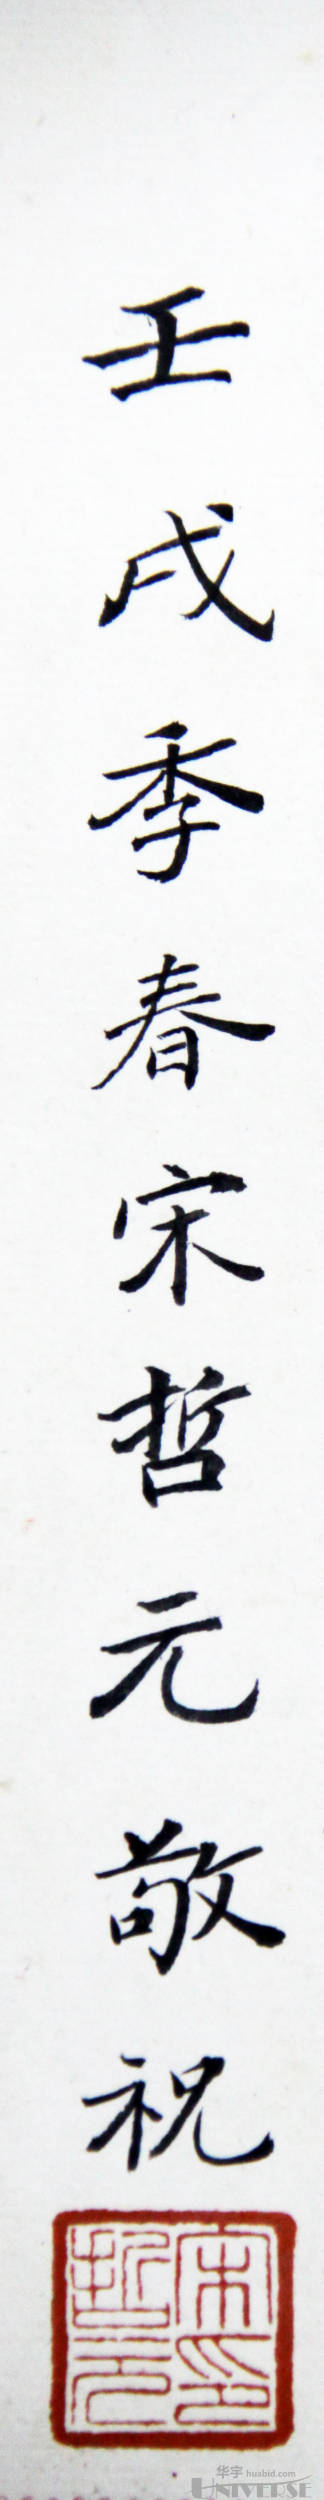 壬戌季春宋哲元敬祝
宋哲元印
华宇 huabid.com
UNIVERSE